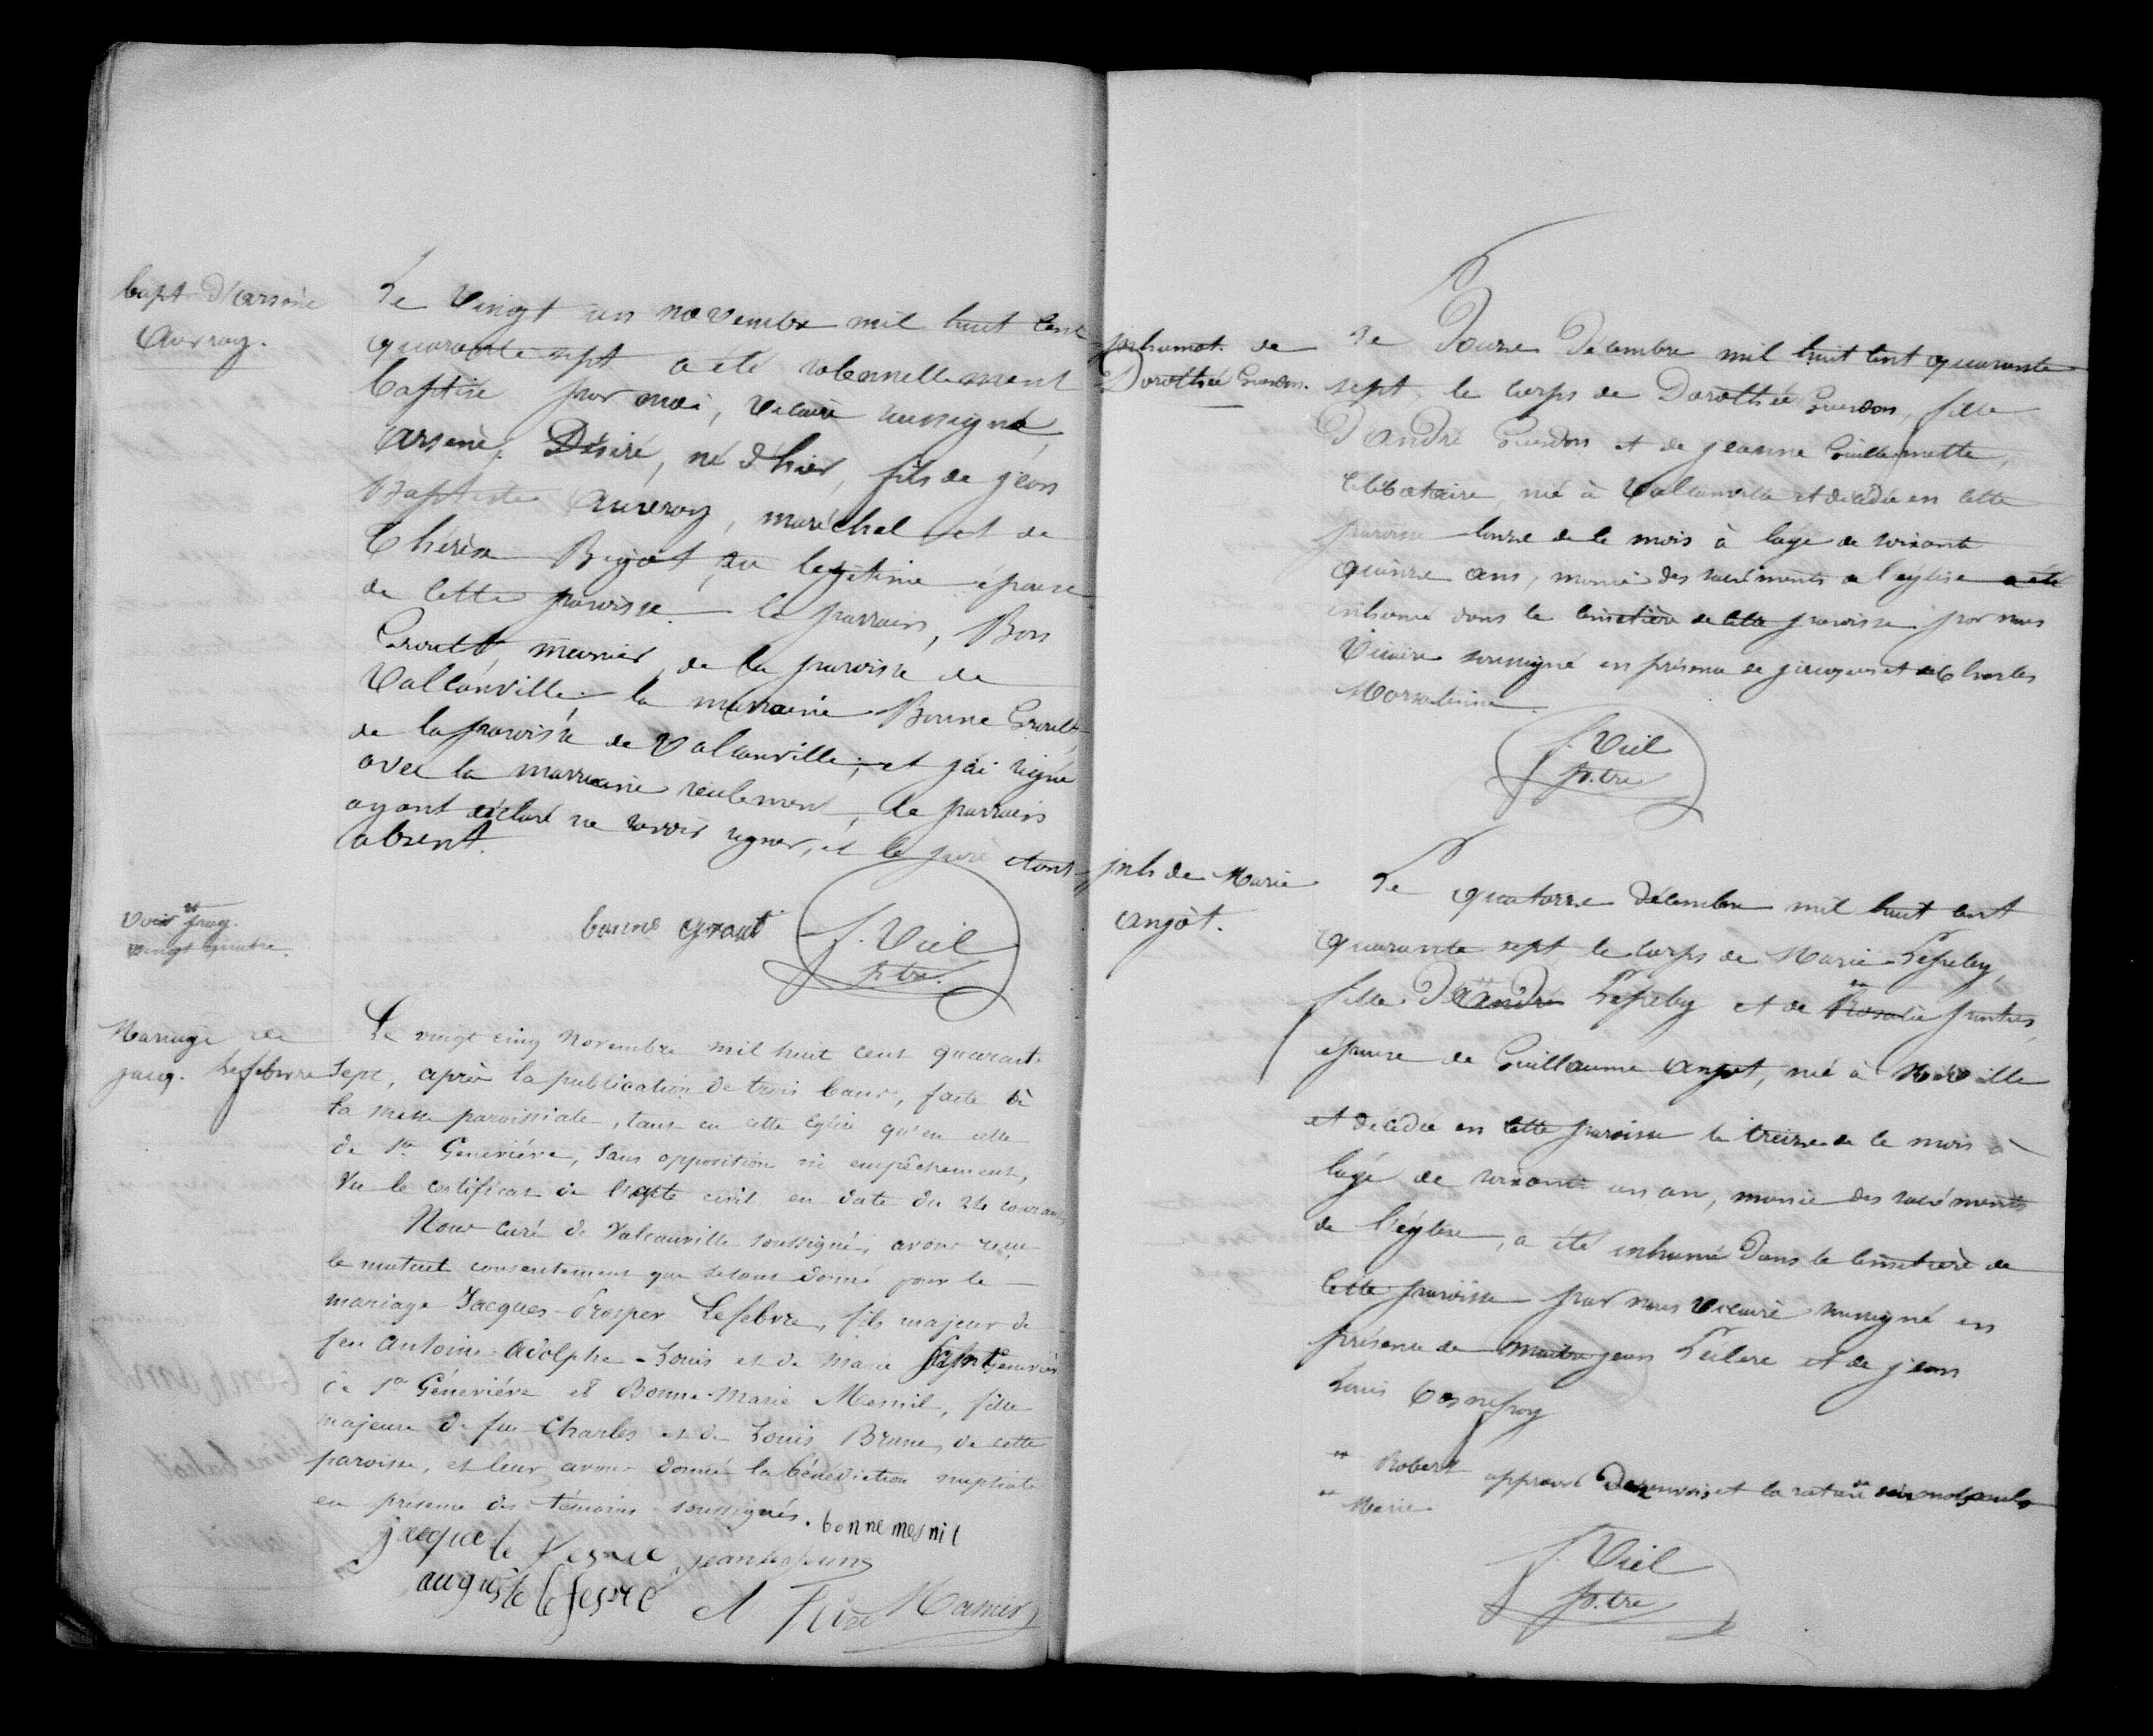 bapt. d'arsène
Auvray.
Le vingt un novembre mil huit cent
quarante sept a été solennellement
baptisé par moi, vicaire soussigné,
arsène, Désiré, né d'hier, fils de jean
Baptiste Auvray, maréchal et de
Thérèse Bigot, sa légitime épouse
de cette paroisse. le parrain, Bon
Groult, meunier, de la paroisse de
Valcanville, la marraine Bonne Groult
de la paroisse de Valcanville; et j'ai signé
avec la marraine seulement, le parrain
ayant déclaré ne savoir signer, et le père étant
absent.
bonne grout
J. Viel
ptre.
Voir pag.
vingt quatre.
Mariage de
jacq. Lefebvre
Le vingt cinq novembre mil huit cent quarante
sept, après la publication de trois bans, faite à
la messe paroissiale, tant en cette église qu'en celle
de Ste Geneviève, sans opposition ni empêchement,
Vu le certificat de l'acte civil en date du 24 courant
Nous curé de Valcanville soussigné, avons reçu
le mutuel consentement que se sont donné pour le
mariage Jacques-Prosper Lefebvre, fils majeur de
feu Antoine-Adolphe-Louis et de Marie
de Ste Géneviève et Bonne-Marie Mesnil, fille
majeure de feu Charles et de Louis Brune, de cette
paroisse, et leur avons donné la bénédiction nuptiale
en présence des témoins soussignés. bonne mesnil
jacque le fesvre
auguste le fesvre
inhumat. de
Dorothée Guerdon.
Le Douze Décembre mil huit cent quarante
sept, le corps de Dorothée Guerdon, fille
D'André Guerdon et de jeanne Guillemette,
célibataire, né à Valcanville et décédée en cette
paroisse le onze de ce mois à l'age de soixante
quinze ans, munie des sacréments de l'église a été
inhumé dans le cimetière de cette paroisse par nous
Vicaire soussigné en présence de jacques et de Charles
Marsalines
J. Viel
ptre
inh. de Marie
angot.
Le quatorze Décembre mil huit cent
quarante sept le corps de Marie
fille D'André et de Rosalie
épouse de Guillaume angot, né à
et décédée en cette paroisse le treize de ce mois à
l'age de soixante un an, munie des sacréments
de l'église, a été inhumé Dans le cimetière de
cette paroisse par nous Vicaire soussigné en
présence de jean et de jean
Louis Cosnefroy
Robert approuvé
Marie
J. Viel
ptre